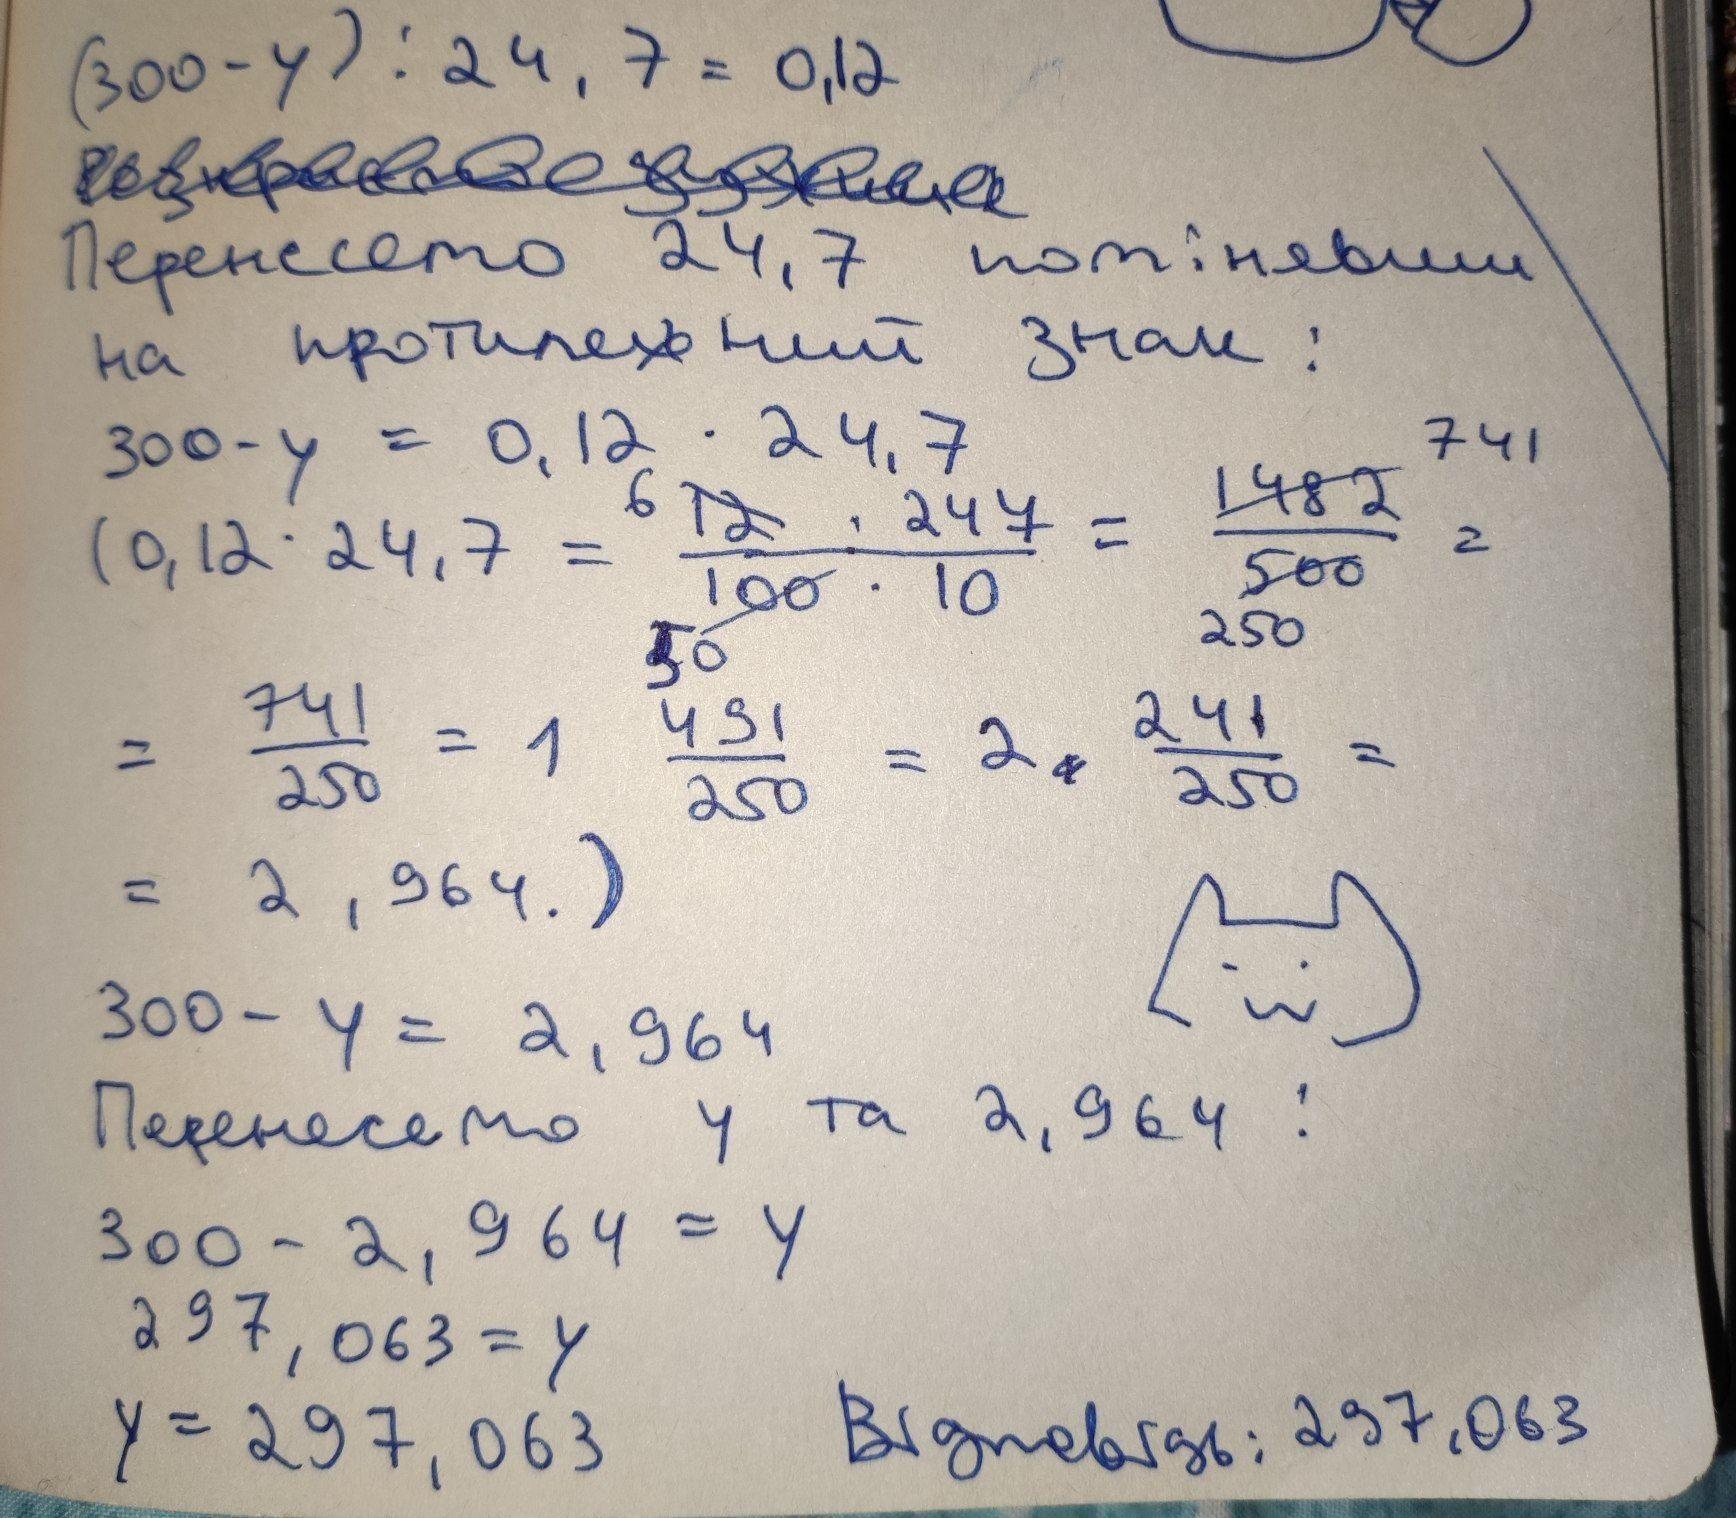 (300-y):24,7=0,12
Перенесемо 24,7 помінявши
на протилежний знак:
300-y = 0,12 · 24,7
(0,12·24,7 = 6 12 · 247 / 100 · 10 50 = 1482 741 / 500 250 =
= 741/250 = 1 491/250 = 2 241/250 =
= 2,964.)
300-y = 2,964
Перенесемо y та 2,964:
300-2,964 = y
297,063 = y
y = 297,063 Відповідь: 297,063